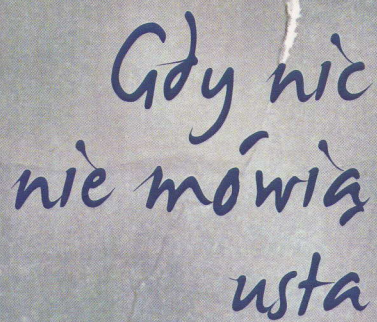 Gdy nic
nie mówią
usta